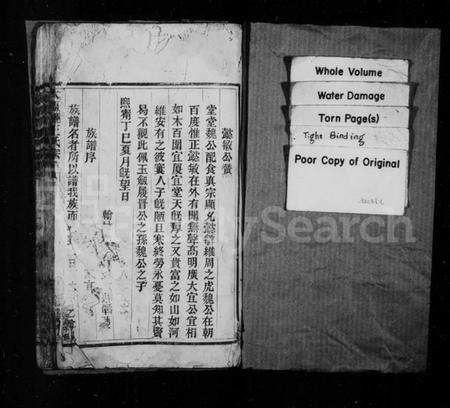 懿敏公贊
堂堂魏公配食真宗顯允懿敏維周之虎魏公在朝
百度惟正懿敏在外有聞無聲高明廣大宜公宜相
如木百圍宜厦宜堂天既尊之又貴富之如山如河
維安有之彼窶人子既陋且寒終勞永憂莫知其賢
曷不觀此佩玉劍履晉公之孫魏公之子
熙甯丁巳夏月既望日
族譜序
翰
族譜名者所以譜我族而
Whole Volume
Water Damage
Torn Page(s)
Tight Binding
Poor Copy of Original
FamilySearch